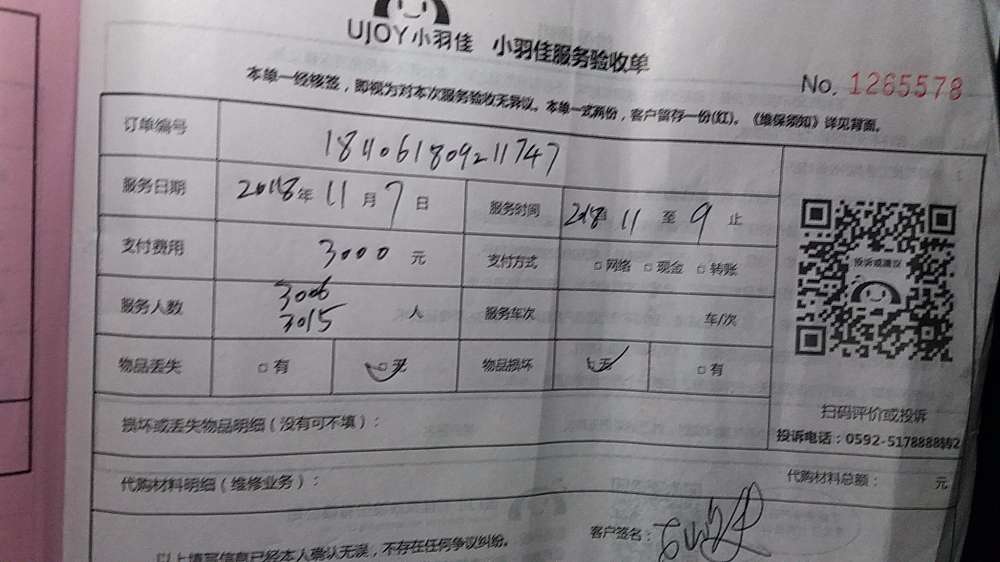 UJOY小羽佳 小羽佳服务验收单
No. 1265578
本单一经核签，即视为对本次服务验收无异议。本单一式两份，客户留存一份(红)。《维保须知》详见背面。
订单编号 184061809211747
服务日期 2018年 11 月 7 日 服务时间 11 至 9 止
支付费用 3000 元 支付方式 □网络 □现金 □转账
服务人数 3006 3015 人 服务车次 车/次
物品丢失 □有 □无 物品损坏 □无 □有
投诉或建议
扫码评价或投诉
投诉电话：0592-5178888转2
损坏或丢失物品明细（没有可不填）：
代购材料明细（维修业务）： 代购材料总额： 元
客户签名：
以上填写信息已经本人确认无误，不存在任何争议纠纷。